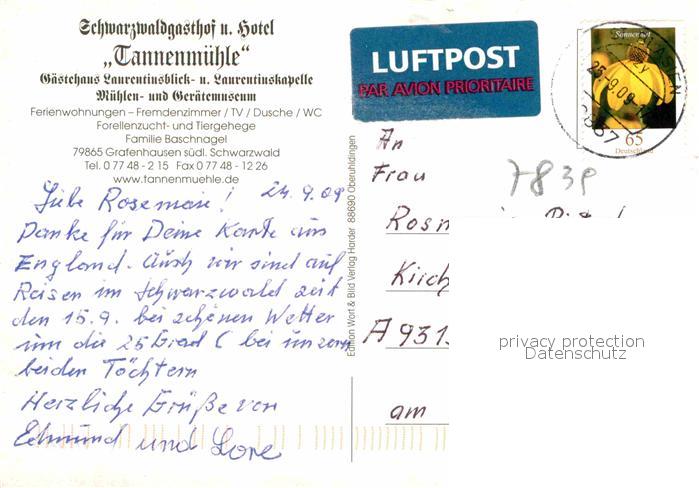 Schwarzwaldgasthof u. Hotel
„Tannenmühle“
Gästehaus Laurentiusblick- u. Laurentiuskapelle
Mühlen- und Gerätemuseum
Ferienwohnungen – Fremdenzimmer / TV / Dusche / WC
Forellenzucht- und Tiergehege
Familie Baschnagel
79865 Grafenhausen südl. Schwarzwald
Tel. 0 77 48 - 2 15 Fax 0 77 48 - 12 26
www.tannenmuehle.de
24.9.09
Liebe Rosemarie!
Danke für Deine Karte aus
England. Auch wir sind auf
Reisen im Schwarzwald seit
den 15.9. bei schönen Wetter
um die 25 Grad C bei unsern
beiden Töchtern
Herzliche Grüße von
Edmund und Lore
Edition Wort & Bild Verlag Harder 88690 Oberuhldingen
LUFTPOST
PAR AVION PRIORITAIRE
Sonnenhut
65
Deutschland
An
Frau
7839
Kirch
A 931
am
privacy protection
Datenschutz